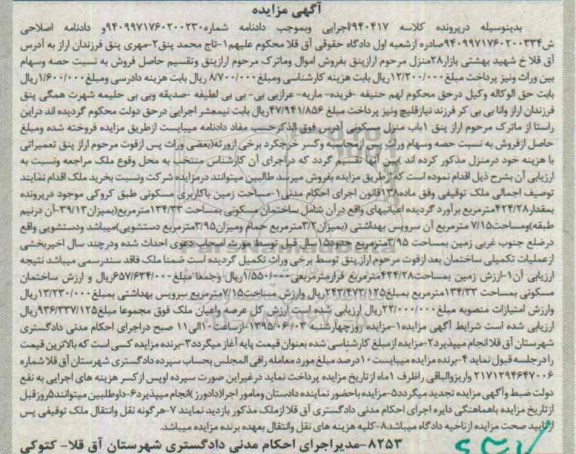 آگهی مزایده
بدینوسیله درپرونده کلاسه ۹۴۰۴۱۷اجرایی وبموجب دادنامه شماره۹۴۰۹۹۷۱۷۶۰۲۰۰۲۳۰و دادنامه اصلاحی
ش۹۴۰۹۹۷۱۷۶۰۲۰۰۳۳۴صادره ازشعبه اول دادگاه حقوقی آق قلا محکوم علیهم۱-تاج محمد پنق۲-مهری پنق فرزندان اراز به آدرس
آق قلا خ شهید بهشتی بازار۲۸منزل مرحوم ارازپنق بفروش اموال وماترک مرحوم ارازپنق وتقسیم حاصل فروش به نسبت حصه وسهام
بین وراث ونیز پرداخت مبلغ۱۲/۲۰۰/۰۰۰ریال بابت هزینه کارشناسی ومبلغ۸/۷۰۰/۰۰۰ ریال بابت هزینه دادرسی ومبلغ۱/۶۰۰/۰۰۰ریال
بابت حق الوکاله وکیل درحق محکوم لهم حنیفه -فریده- ماریه- عرازبی بی- بی بی لطیفه -صدیقه وبی بی حلیمه شهرت همگی پنق
فرزندان اراز وانا بی بی کر فرزند نیازقلیچ ونیز پرداخت مبلغ ۴۷/۹۴۱/۸۵۶ریال بابت نیمعشر اجرایی درحق دولت محکوم گردیده اند دراین
راستا از ماترک مرحوم اراز پنق ۱باب منزل مسکونی بآدرس فوق الذکرحسب مفاد دادنامه میبایست ازطریق مزایده فروخته شده ومبلغ
حاصل ازفروش به نسبت حصه وسهام وراث پس ازمحاسبه وکسر خرجکرد برخی ازورثه(بعضی وراث پس ازفوت مرحوم اراز پنق تعمیراتی
با هزینه خود درمنزل مذکور کرده اند) بین آنها تقسیم گردد که دراجرای آن کارشناس منتخب به محل وقوع ملک مراجعه ونسبت به
ارزیابی آن بشرح ذیل اقدام نموده است که ازطریق مزایده بفروش میرسد طالبین میتوانند درمزایده شرکت ونسبت بخرید ملک اقدام نمایند
توصیف اجمالی ملک توقیفی وفق ماده۱۳۸قانون اجرای احکام مدنی۱-مساحت زمین باکاربری مسکونی طبق کروکی موجود درپرونده
بمقدار۴۲۴/۲۸مترمربع برآورد گردیده اعیانیهای واقع درآن شامل ساختمان مسکونی بمساحت ۱۳۴/۳۳مترمربع(بمیزان۳۹/۱۳-آن درنیم
طبقه)ومساحت۷/۱۵ مترمربع آن سرویس بهداشتی (بمیزان۳/۲مترمربع حمام ومیزان۳/۹۵مترمربع دستشویی)میباشد ودستشویی واقع
درضلع جنوب غربی زمین بمساحت ۳/۹۵مترمربع حدود۱۵سال قبل توسط مورث اصحاب دعوی احداث شده ودرچند سال اخیربخشی
ازعملیات تکمیلی ساختمان بعد ازفوت مرحوم اراز پنق توسط برخی وراث تکمیل گردیده است ضمنا ملک فاقد سندرسمی میباشد نتیجه
ارزیابی آن۱-ارزش زمین بمساحت۴۲۴/۲۸مترمربع قرارمترمربعی-۱/۵۵۰/۰۰۰ریال وجمعا مبلغ۶۵۷/۶۳۴/۰۰۰ریال و ارزش ساختمان
مسکونی بمساحت ۱۳۴/۳۳مترمربع بمبلغ۲۴۳/۴۷۳/۱۲۵ریال وارزش مساحت۷/۱۵مترمربع سرویس بهداشتی بمبلغ۱۳/۲۳۰/۰۰۰ریال
وارزش امتیازات منصوبه مبلغ۲۲/۰۰۰/۰۰۰ریال ارزیابی شده است ارزش کل عرصه واعیان ملک فوق مجموعا مبلغ۹۳۶/۳۳۷/۱۲۵ریال
ارزیابی شده است شرایط آگهی مزایده۱-مزایده روزچهارشنبه ۱۳۹۵/۰۶/۰۳ازساعت۱۰الی۱۱ صبح دراجرای احکام مدنی دادگستری
شهرستان آق قلا انجام میپذیرد۲-مزایده ازمبلغ کارشناسی شده بعنوان قیمت پایه آغاز میگردد۳-برنده مزایده کسی است که بالاترین قیمت
را درجلسه قبول نماید ۴-برنده مزایده میبایست۱۰درصد مبلغ مورد معامله رافی المجلس بحساب سپرده دادگستری شهرستان آق قلا شماره
۲۱۷۱۲۹۴۶۴۷۰۰۶ واریزوالباقی راظرف ۱ماه ازتاریخ مزایده پرداخت نماید درغیراین صورت سپرده اوپس ازکسر هزینه های اجرایی به نفع
دولت ضبط وآگهی مزایده تجدید میگردد۵-مزایده باحضور نماینده دادستان ومامور اجرا(دادورز)انجام میپذیرد۶-داوطلبین میتوانند۵روزقبل
ازتاریخ مزایده باهماهنگی دایره اجرای احکام مدنی دادگستری آق قلا ازملک مذکور بازدید نمایند ۷-هرگونه نقل وانتقال ملک توقیفی پس
ازتایید صحت مزایده ازناحیه دادگاه میباشد۸-کلیه هزینه های نقل وانتقال بعهده برنده مزایده میباشد.
۸۲۵۳-مدیراجرای احکام مدنی دادگستری شهرستان آق قلا- کتوکی